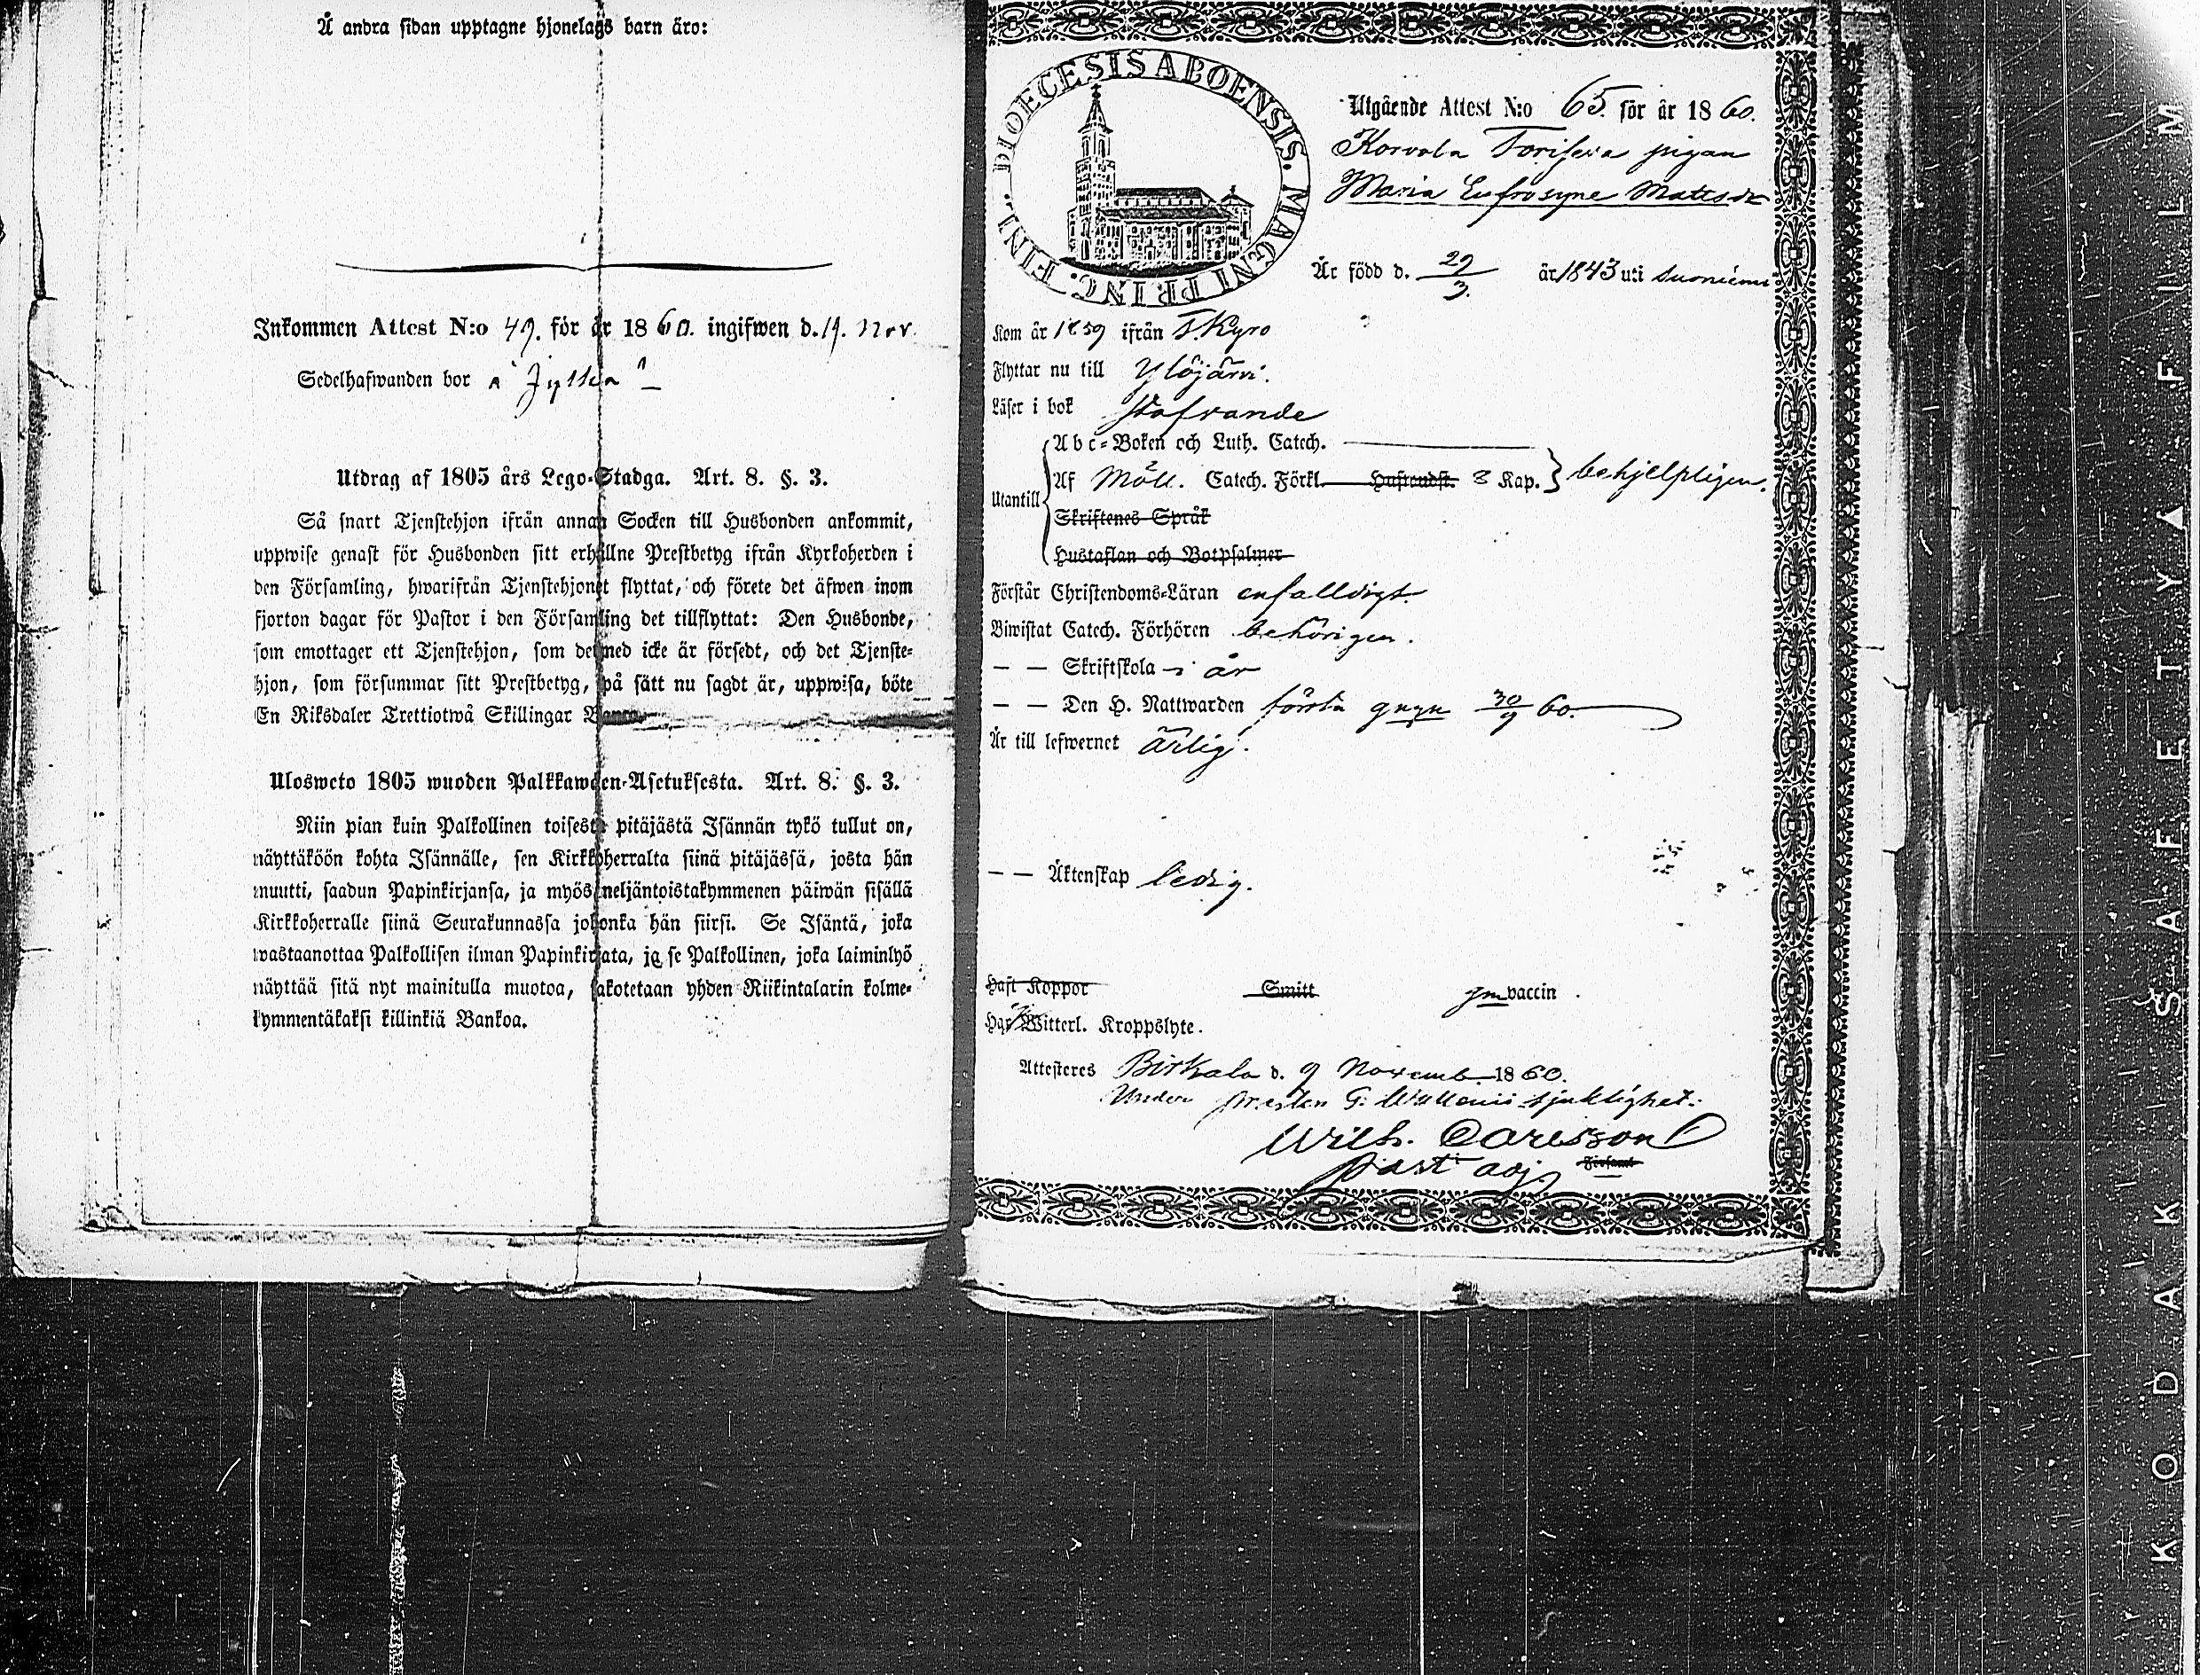 Å andra sidan upptagne hjonelags barn äro:
Inkommen Attest N:o 49. för år 1860. ingifwen d. 19. Nov.
Sedelhafwanden bor å
Utdrag af 1805 års Lego-Stadga. Art. 8. §. 3.
Så snart Tjenstehjon ifrån annan Socken till Husbonden ankommit,
uppwise genast för Husbonden sitt erhållne Prestbetyg ifrån Kyrkoherden i
den Församling, hwarifrån Tjenstehjonet flyttat, och förete det äfwen inom
fjorton dagar för Pastor i den Församling det tillflyttat: Den Husbonde,
som emottager ett Tjenstehjon, som dermed icke är försedt, och det Tjenste-
hjon, som försummar sitt Prestbetyg, på sätt nu sagdt är, uppwisa, böte
En Riksdaler Trettiotwå Skillingar Banco.
Ulosweto 1805 wuoden Palkkawäen-Asetuksesta. Art. 8. §. 3.
Niin pian kuin Palkollinen toisesta pitäjästä Isännän tykö tullut on,
näyttäköön kohta Isännälle, sen Kirkkoherralta siinä pitäjässä, josta hän
muutti, saadun Papinkirjansa, ja myös neljäntoistakymmenen päiwän sisällä
Kirkkoherralle siinä Seurakunnassa johonka hän siirsi. Se Isäntä, joka
wastaanottaa Palkollisen ilman Papinkirjata, ja se Palkollinen, joka laiminlyö
näyttää sitä nyt mainitulla muotoa, sakotetaan yhden Riikintalarin kolme-
kymmentäkaksi killinkiä Bankoa.
DIOECESIS ABOENSIS. MAGNI PRINC. FINL.
Utgående Attest N:o 65. för år 1860.
Korvola pigan
Maria Eufrosyne Mattsdr
Är född d. 29/3. år 1843 uti Suoniemi
Kom år 1859 ifrån T.Kyro
Flyttar nu till Ylöjärvi.
Läser i bok stafvande
Utantill
Abc-Boken och Luth. Catech.
Af Möll. Catech. Förkl. Hufwudst. 3 Kap. behjelpligen.
Skriftenes Språk
Hustaflan och Botpsalmer
Förstår Christendoms-Läran enfalldigt.
Biwistat Catech. Förhören behörigen.
— — Skriftskola i år
— — Den H. Nattwarden första gngn 30/9 60.
Är till lefwernet ärlig.
— — Äktenskap ledig.
Haft Koppor Smitt gm vaccin.
Har Witterl. Kroppslyte.
Attesteres Birkala d. 9 Novemb. 1860.
Under Prosten G. sjuklighet.
Wilh. Carlsson
past adj Församl
KODAK SAFETY FILM